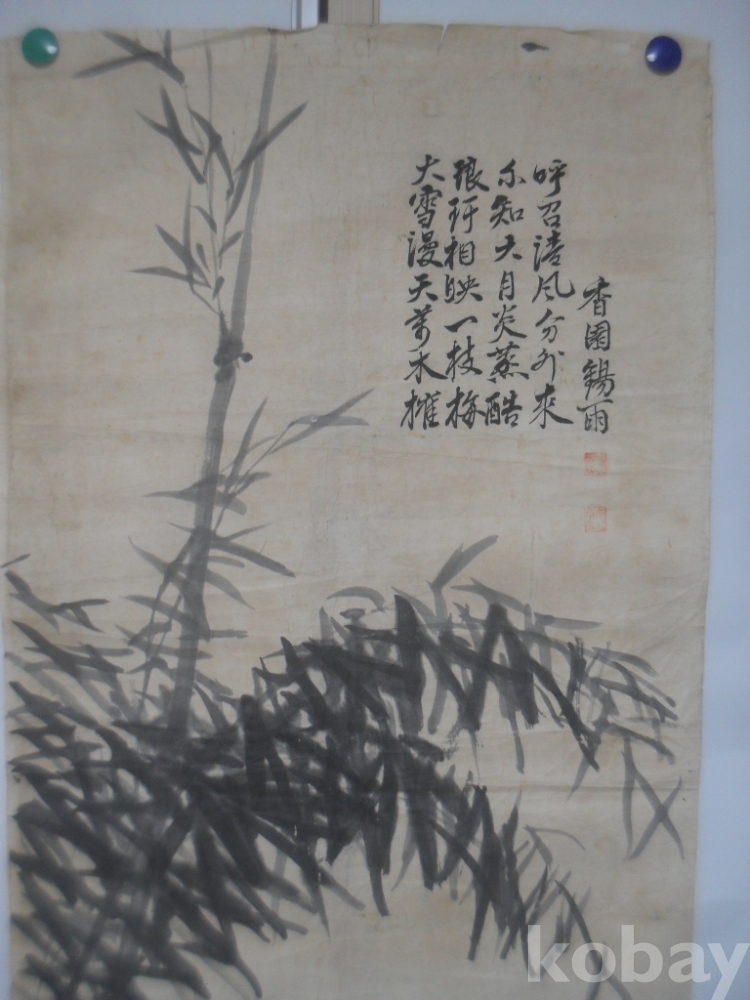 大雪漫天萬木摧
琅玕相映一枝梅
不知六月炎蒸酷
呼召淸風分外來
香園錫雨
kobay